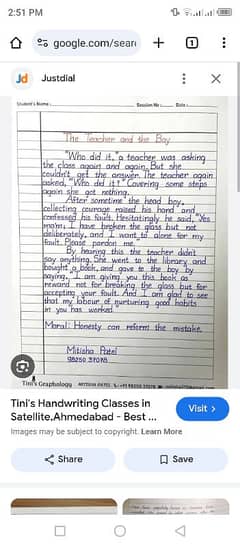 2:51 PM
google.com/sear
1
Jd Justdial
Student's Name :
Session No :
Date :
The Teacher and the Boy
"Who did it," a teacher was asking
the class again and again. But she
couldn't get the answer. The teacher again
asked, "Who did it?" Covering some steps
again she got nothing.
After sometime the head boy,
collecting courage raised his hand and
confessed his fault. Hesitatingly he said, "Yes
mam, I have broken the glass but not
deliberately, and I want to atone for my
fault. Please pardon me."
By hearing this the teacher didn't
say anything. She went to the library and
bought a book, and gave to the boy by
saying, "I am giving you this book as
reward not for breaking the glass but for
accepting your fault. And I am glad to see
that my labour of nurturing good habits
in you has worked."
Moral: Honesty can reform the mistake.
Mitisha Patel
Tini's Graphology
Tini's Handwriting Classes in
Satellite,Ahmedabad - Best ...
Visit >
Images may be subject to copyright. Learn More
Share
Save